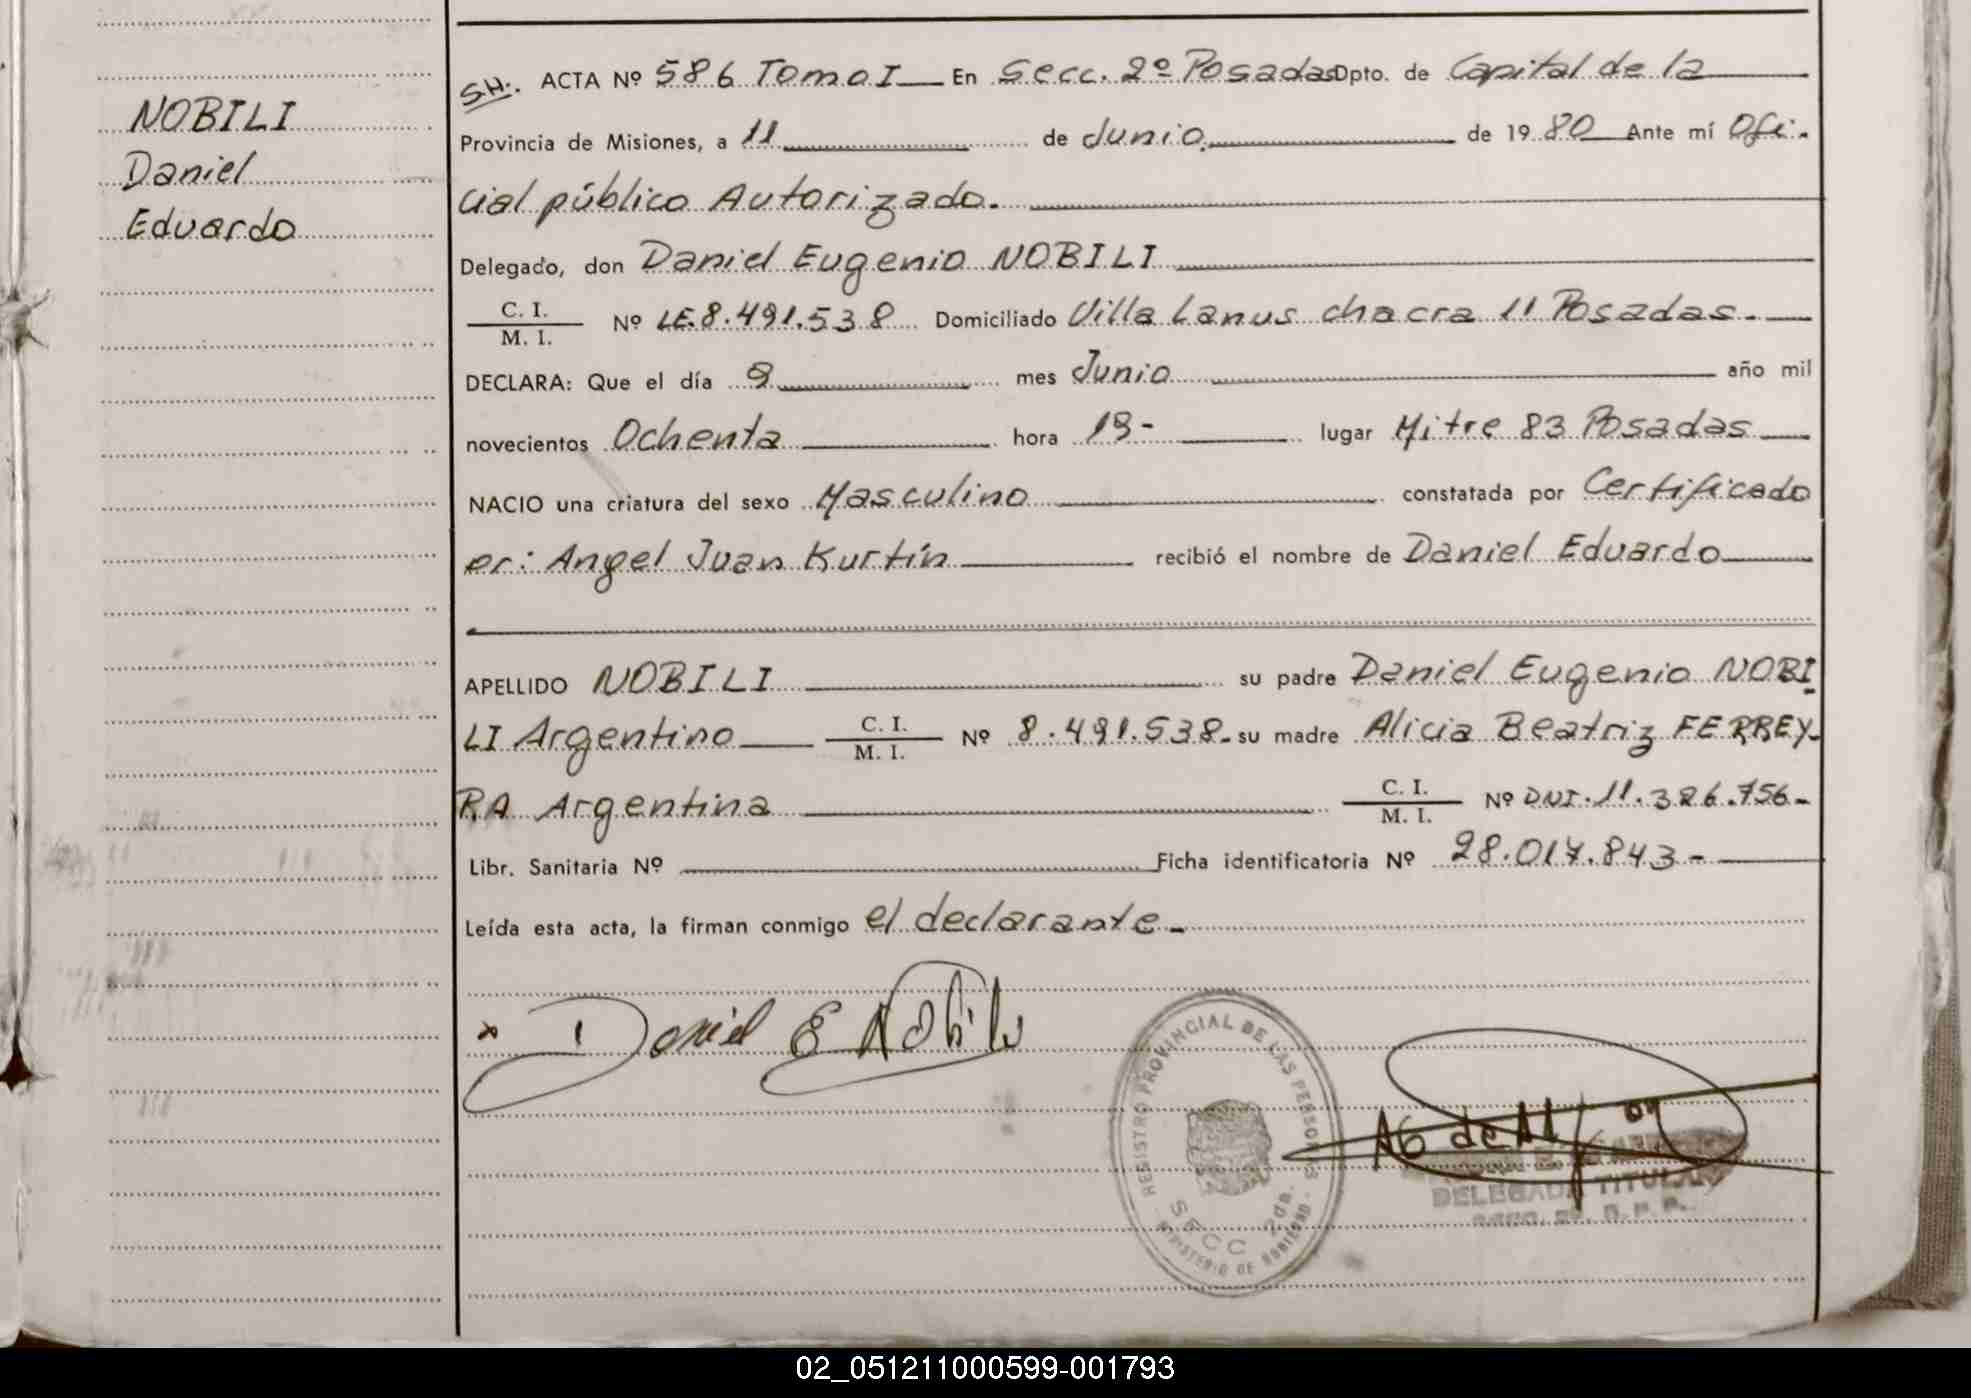 NOBILI
Daniel
Eduardo
S.H:. ACTA Nº 586 Tomo I En Secc. 2º Posadas Dpto. de Capital de la
Provincia de Misiones, a 11 de Junio. de 1980 Ante mí Ofi-
cial público Autorizado.
Delegado, don Daniel Eugenio NOBILI
C. I.
M. I.
Nº LE.8.491.538 Domiciliado Villa Lanus chacra 11 Posadas.
DECLARA: Que el día 9 mes Junio año mil
novecientos Ochenta hora 19- lugar Mitre 83 Posadas
NACIO una criatura del sexo Masculino constatada por Certificado
er: Angel Juan Kurtín recibió el nombre de Daniel Eduardo
APELLIDO NOBILI su padre Daniel Eugenio NOBI
LI Argentino C. I. M. I. Nº 8.491.538- su madre Alicia Beatriz FERREY-
RA Argentina C. I. M. I. Nº DNI.11.326.756-
Libr. Sanitaria Nº Ficha identificatoria Nº 28.017.843-
Leída esta acta, la firman conmigo el declarante.-
Daniel E Nobili
REGISTRO PROVINCIAL DE LAS PERSONAS
SECC 2da.
MINISTERIO DE GOBIERNO
DELEGADA TITULAR
02_051211000599-001793